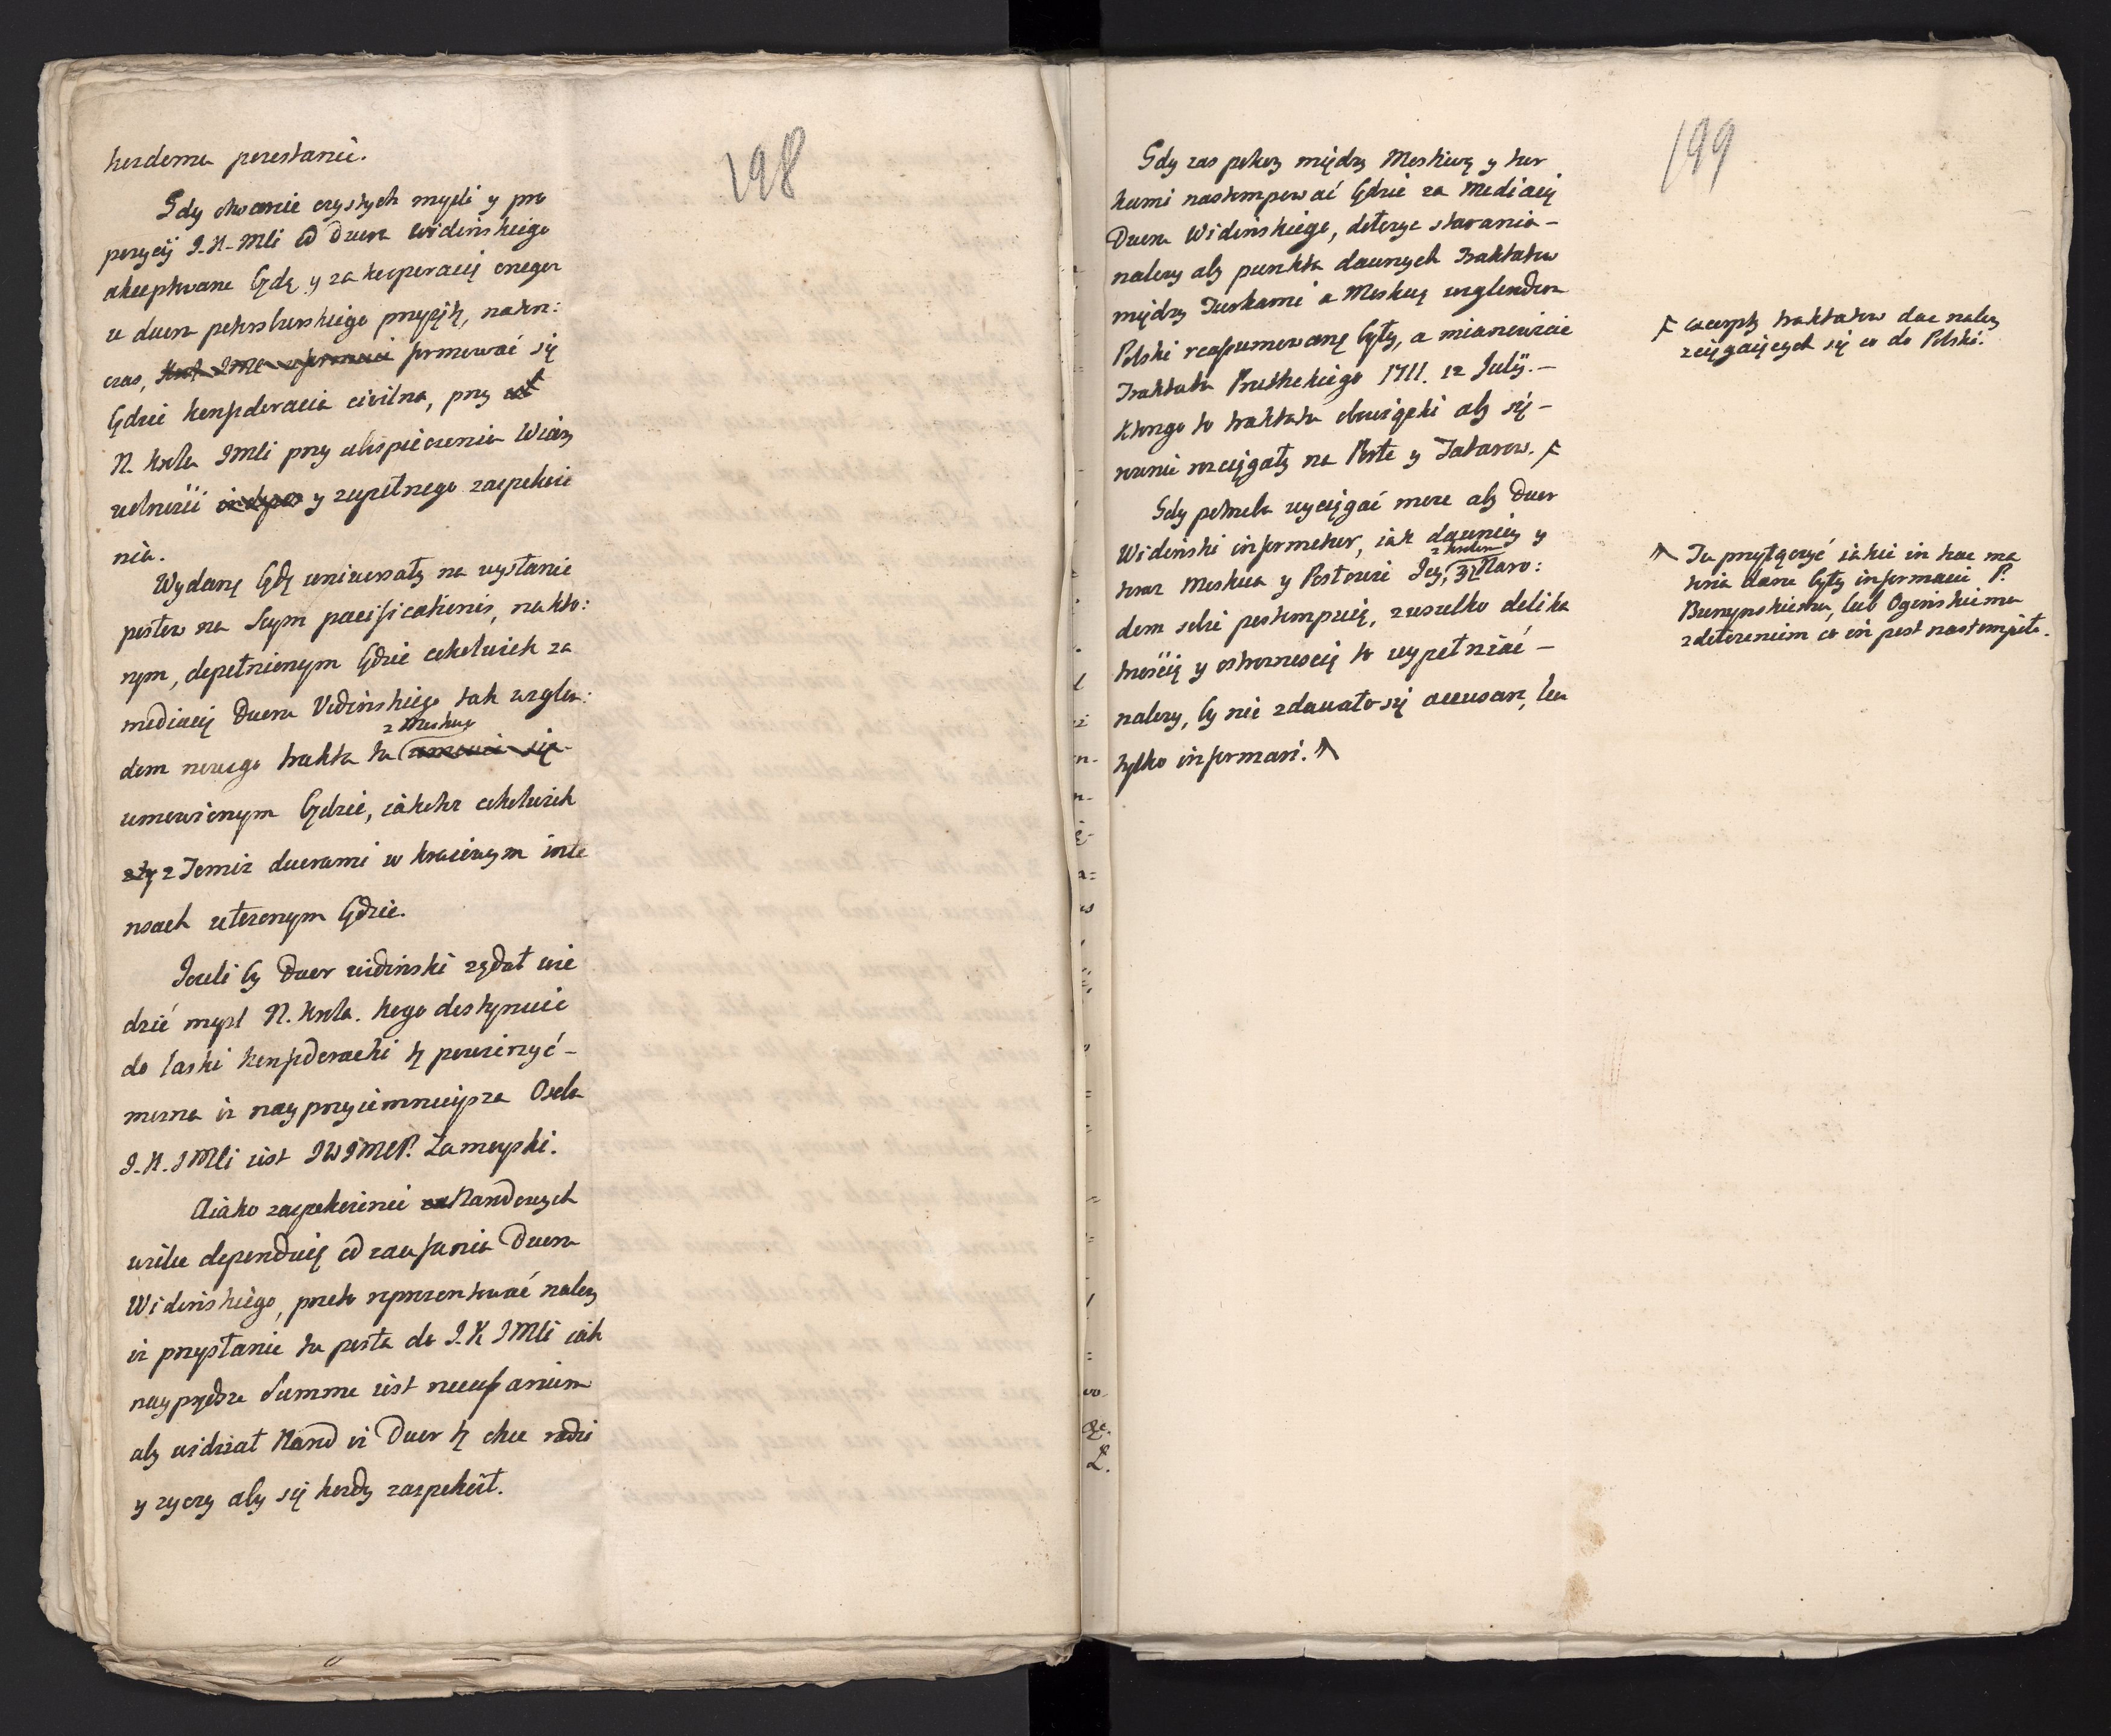 kozdemu perestanie.
Gdy otwarcie czystych mysli y pro
pozycij J.K-Mli od Dwora Widenskiego
akceptowane będą y za kooperacią onegoz
u dwora petersburskiego przyięte, naten:
czas, formować się
będzie konfederacia civilna, przy
N. Krola JMli przy ubespieczeniu Wiary
wolnosci y zupełnego zaspokoie
nia.
Wydane będą uniwersały na wysłanie
posłow na Seym pacificationis, na kto:
rym, dopełnionym będzie cokolwiek za
mediacią Dwora Vidinskiego tak wzglen:
z Moskwą
dem nowego trakta tu umowi się
umowionym będzie, iakotez cokolwiek
z Temiz dworami w kraiowym inte
resach ułozonym będzie.
Jezeli by Dwor vidinski ządał wie
dzić mysl N. Krola. kogo destynuie
do laski konfederacki to powierzyć -
mozna iz nayprzyiemnieysza Osoba
J.K.JMli iest JWJMCP. Zamoyski.
A iako zaspokoienie Narodowych
wiele dependuią od zaufania Dwora
Widinskiego, przeto reprezentować nalezy
iz przysłanie tu posła do J.K JMli iak
nayprędze summe iest
aby widział Narod iz Dwor to chce radzi
y zyczy aby się kozdy zaspokoił.
198
Gdy zas pokoy między Moskwą y tur
kami nastempować będzie za Mediacią
Dwora Widinskiego, dołozyc starania -
nalezy aby punkta dawnych Traktatow
między Turkami a Moskwą wzglendem
Polski reassumowane były, a mianowicie
Traktatu Pruthskiego 1711. 12 Julÿ. -
ktorego to traktatu obwiązki aby się -
rownie rozciągały na Porte y Tatarow.
Gdy potrzeba wyciągać moze aby Dwor
Widinski informować, iak dawniey y
z krolem
teraz Moskwa y Posłowie Jey, y Naro:
dem sobie postempuią, z wszelko delika
tnoscią y ostroznoscią to wypełniać -
nalezy, by nie zdawało się accusare, lecz
tylko informari.
199
excerpty traktatow dac nalezy
zciągaiących się co do Polski.
Tu przyłączyć iakie in hac ma
teria dane były informacie P.
Burzynskiemu, lub Oginskiemu
z dołozeniem co in post nastempiło.